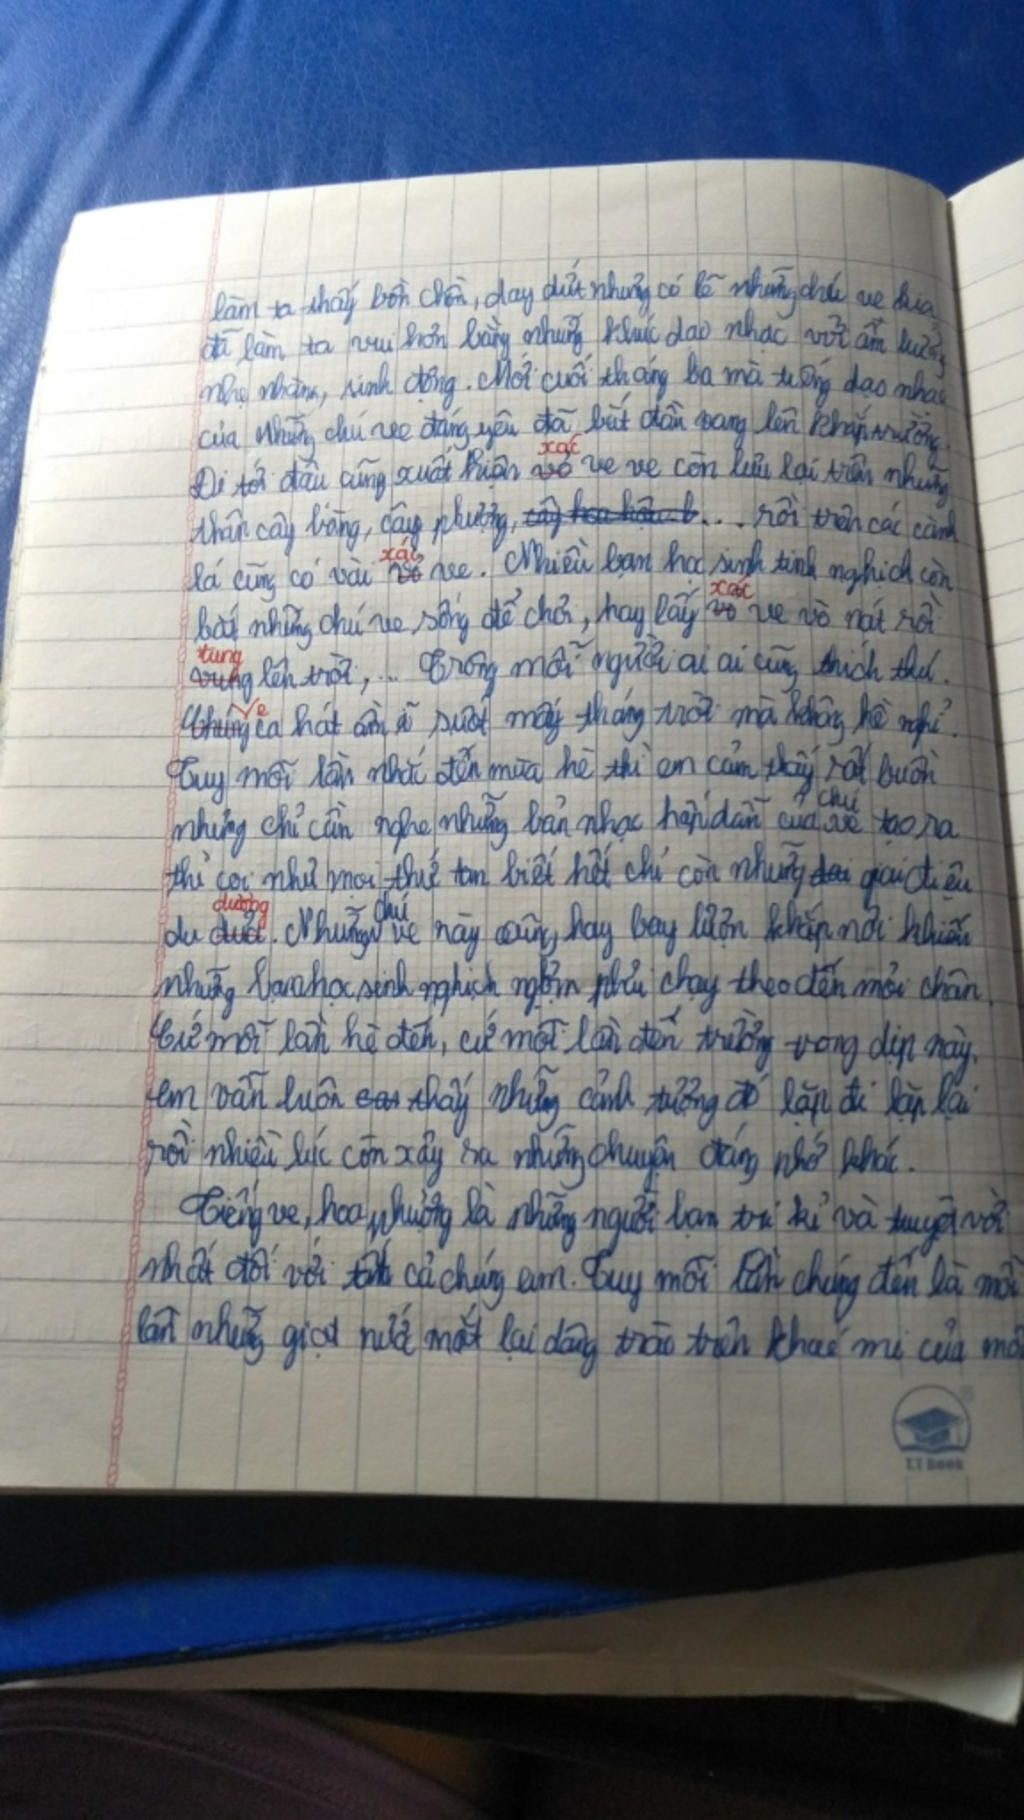 làm ta thấy bồn chồn, day dứt nhưng có lẽ những chú ve kia
đã làm ta vui hơn bằng những khúc dạo nhạc với âm hưởng
nhẹ nhàng, sinh động. Mới cuối tháng ba mà tiếng dạo nhạc
của những chú ve đáng yêu đã bắt đầu vang lên khắp trường.
xác
Đi tới đâu cũng xuất hiện vỏ ve ve còn lưu lại trên những
thân cây bàng, cây phượng, .... rồi trên các cành
xác
lá cũng có vài vỏ ve. Nhiều bạn học sinh tinh nghịch còn
xác
bắt những chú ve sống để chơi, hay lấy vỏ ve vò nát rồi
tung
vung lên trời, ... Trông mỗi người ai ai cũng thích thú.
Ve
Chúng ca hát ầm ĩ suốt mấy tháng trời mà không hề nghỉ.
Tuy mỗi lần nhắc đến mùa hè thì em cảm thấy rất buồn
chú
nhưng chỉ cần nghe những bản nhạc hấp dẫn của ve tạo ra
thì coi như mọi thứ tan biết hết chỉ còn những giai điệu
dương chú
du dưa. Những ve này cũng hay bay lượn khắp nơi khiến
những bạn học sinh nghịch ngợm phải chạy theo đến mỏi chân.
Cứ mỗi lần hè đến, cứ mỗi lần đến trường trong dịp này,
em vẫn luôn thấy những cảnh tượng đó lặp đi lặp lại
rồi nhiều lúc còn xảy ra những chuyện đáng nhớ khác.
Tiếng ve, hoa phượng là những người bạn tri kỉ và tuyệt vời
nhất đối với cả chúng em. Tuy mỗi lần chúng đến là mỗi
lần những giọt nước mắt lại dâng trào trên khoé mi của mỗi
T.T Book